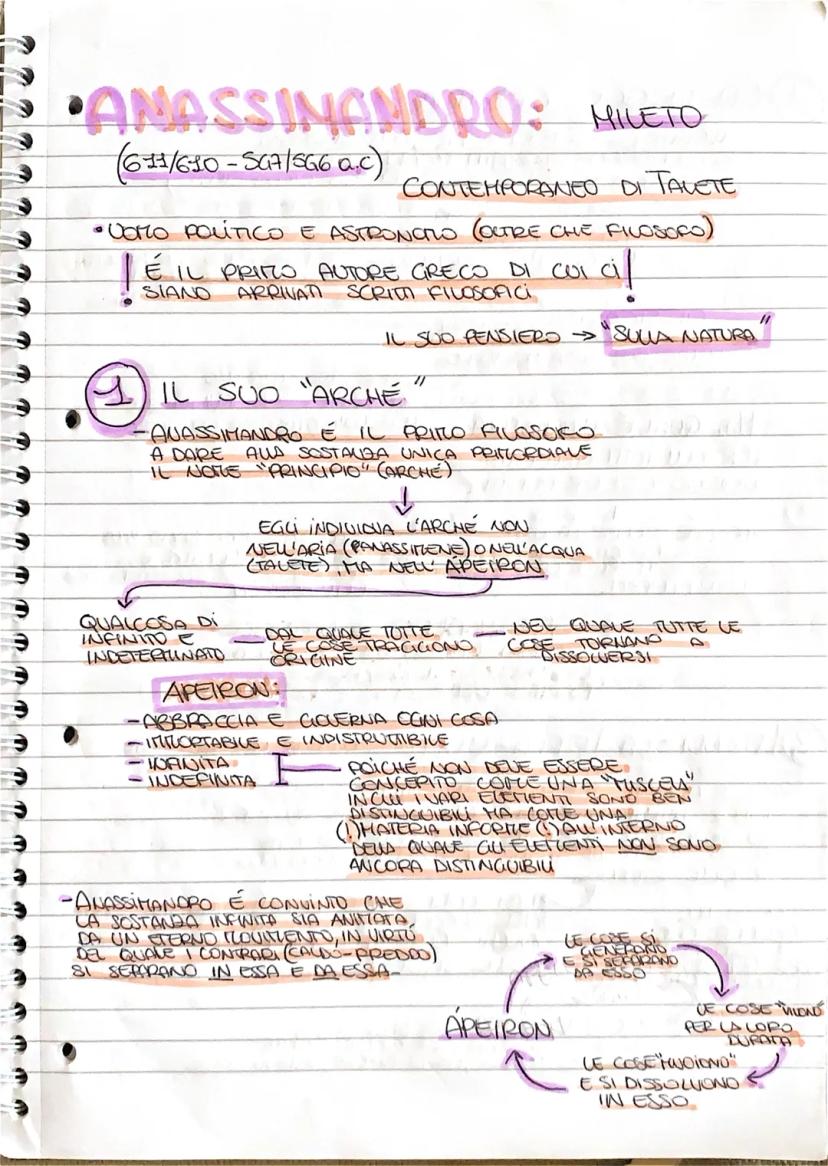 •ANASSIMANDRO: MILETO
(611/610 - 547/546 a.c)
CONTEMPORANEO DI TALETE
•UOMO POLITICO E ASTRONOMO (OLTRE CHE FILOSOFO)
! É IL PRIMO AUTORE GRECO DI CUI CI !
SIANO ARRIVATI SCRITTI FILOSOFICI
IL SUO PENSIERO → "SULLA NATURA"
1 IL SUO "ARCHÉ"
-ANASSIMANDRO É IL PRIMO FILOSOFO
A DARE ALLA SOSTANZA UNICA PRIMORDIALE
IL NOME "PRINCIPIO" (ARCHÉ)
EGLI INDIVIDUA L'ARCHÉ NON
NELL'ARIA (ANASSIMENE) O NELL'ACQUA
(TALETE), MA NELL'ÁPEIRON
QUALCOSA DI
INFINITO E
INDETERMINATO
— DAL QUALE TUTTE
LE COSE TRAGGONO
ORIGINE
— NEL QUALE TUTTE LE
COSE TORNANO A
DISSOLVERSI
APEIRON:
-ABBRACCIA E GOVERNA OGNI COSA
- IMMORTABILE E INDISTRUTTIBILE
- INFINITA
- INDEFINITA
POICHÉ NON DEVE ESSERE
CONCEPITO COME UNA "MISCELA"
IN CUI I VARI ELEMENTI SONO BEN
DISTINGUIBILI MA COME UNA
(!)MATERIA INFORME(!) ALL'INTERNO
DELLA QUALE GLI ELEMENTI NON SONO
ANCORA DISTINGUIBILI
-ANASSIMANDRO É CONVINTO CHE
LA SOSTANZA INFINITA SIA ANIMATA
DA UN ETERNO MOVIMENTO, IN VIRTÚ
DEL QUALE I CONTRARI (CALDO-FREDDO)
SI SEPARANO IN ESSA E DA ESSA-
LE COSE SI
GENERANO
E SI SEPARANO
DA ESSO
LE COSE "VIVONO"
PER LA LORO
DURATA
ÁPEIRON
LE COSE "MUOIONO"
E SI DISSOLVONO
IN ESSO